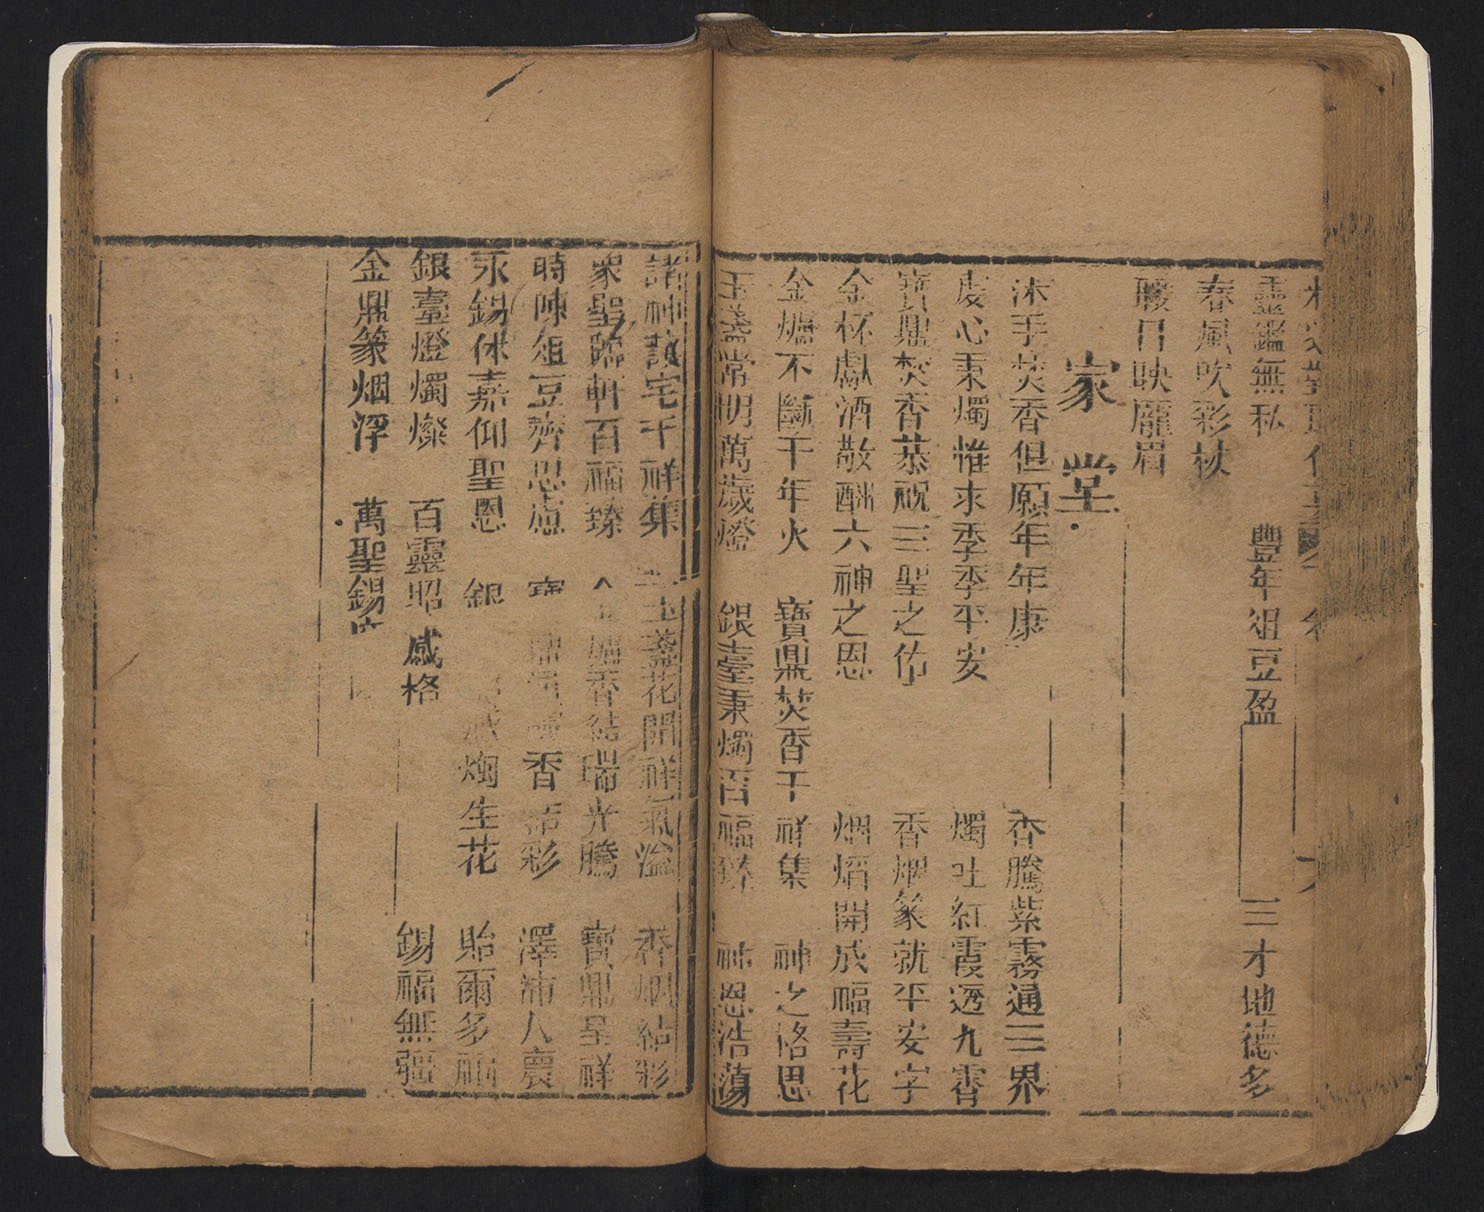 靈鑑無私 豐年俎豆盈 三才地德多
春風吹彩杖
暖日映龐眉
家堂
沐手焚香但願年年康 香騰紫霧通三界
虔心秉燭惟求季季平安 燭吐紅霞透九霄
寶鼎焚香恭祝三聖之佑 香烟篆就平安字
金杯獻酒敬酬六神之恩 烟熖開成福壽花
金爐不斷千年火 寶鼎焚香千祥集 神之格思
玉盞常明萬歲燈 銀臺秉燭百福臻 神恩浩蕩
諸神護宅千祥集 玉盞花開祥氣溢 香烟結彩
衆聖臨軒百福臻 爐香結瑞光騰 寶鼎呈祥
時陳俎豆齊思 寶 香結彩 澤沛人寰
永錫休嘉仰聖恩 銀 燭生花 貽爾多福
銀臺燈燭燦 百靈昭感格 錫福無疆
金鼎篆烟浮 萬聖錫